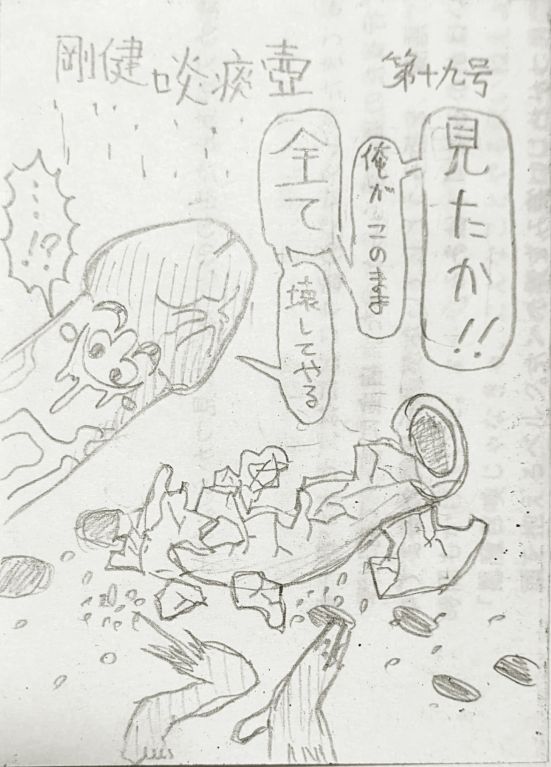 剛健啖痰壺
第十九号
見たか!!
俺がこのまま
全て
壊してやる
…!?